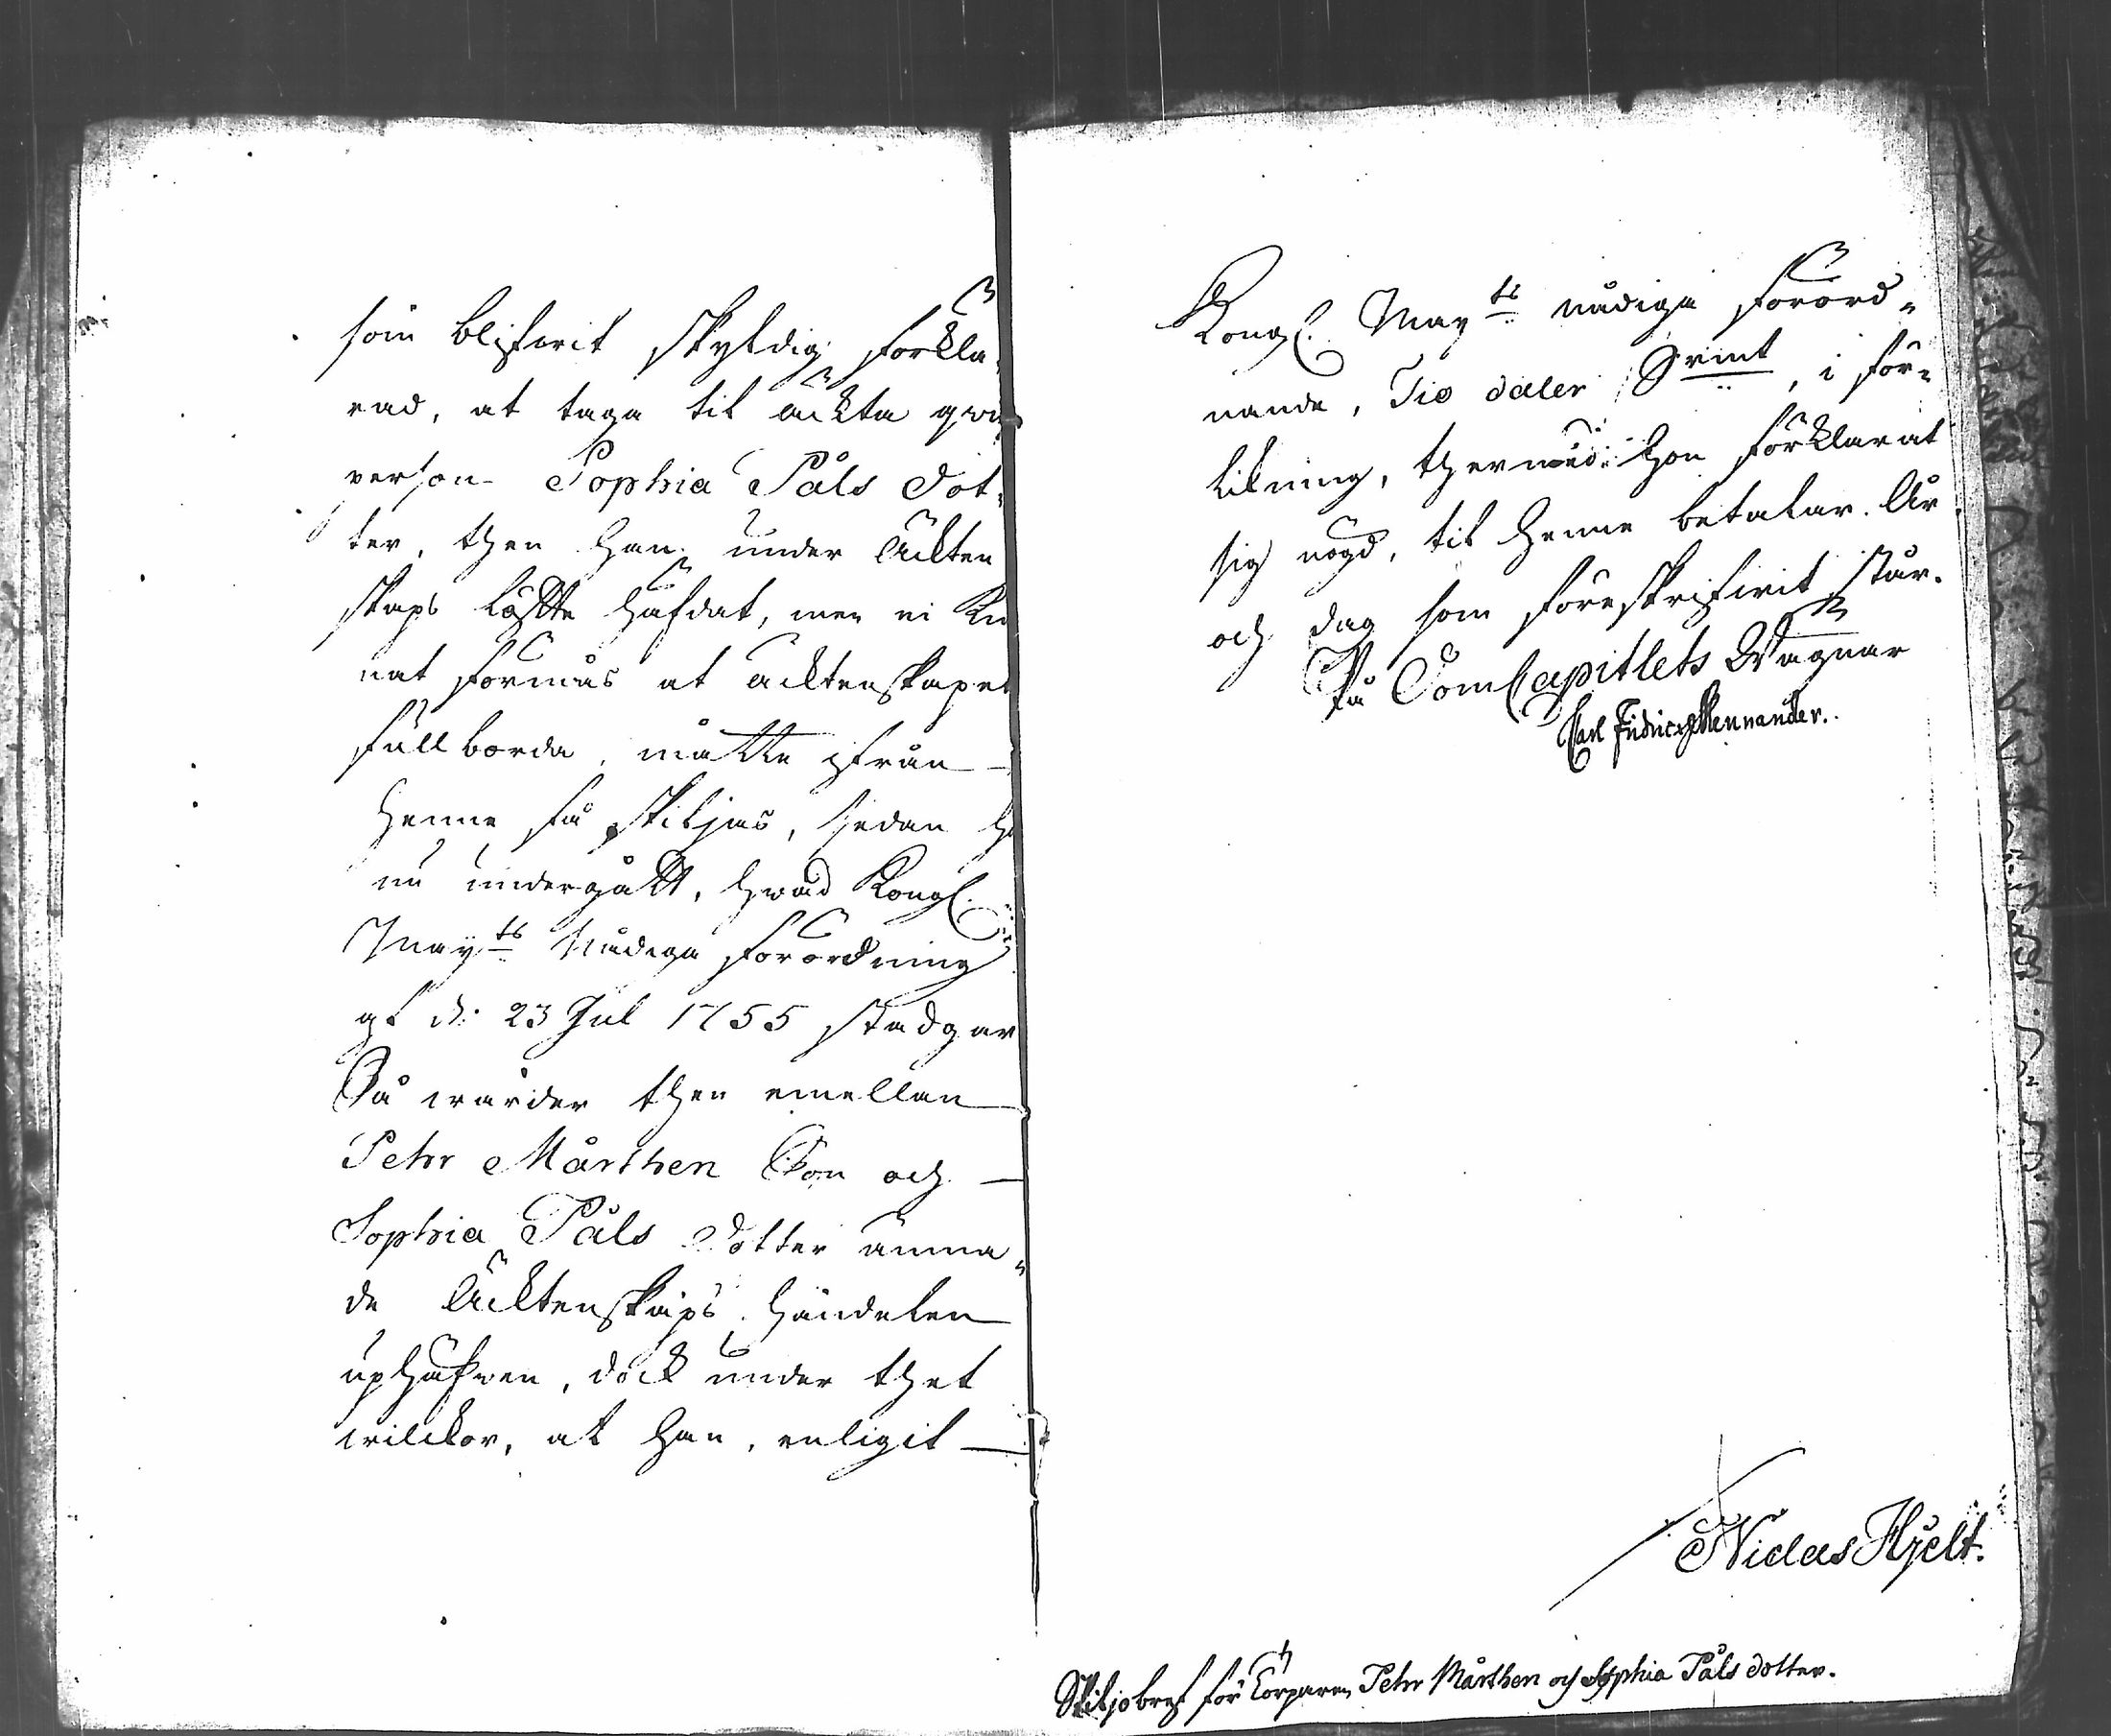 som blifwit skyldig förkla-
rad, at taga til ächta qwi
person Sophia Påls dot-
ter, then han under Ächten
skaps löfte häfdat, men ei Kun
nat förmås at ächtenskapet
fullborda, måtte ifrån
henne få skiljas, sedan h
nu undergått, hwad Kongl.
Mayts Nådiga förordning
af d: 23 Jul 1755 stadgar
Så warder then emellan
Pehr Mårthen Son och
Sophia Påls dotter ämna-
de Ächtenskaps handelen
uphäfwen, dock under thet
wilckor, at han, enligit
Kongl. Mayts nådiga förord-
nande, Tio daler Srmt, i för-
likning, thermed hon förklarat
sig nögd, til henne betalar. År
och dag som föreskrifwit står.
På DomCapitlets Wägnar
Carl Fridric Mennander.
Niclas Hjelt.
Skiljobref för Torparen Pehr Mårthen och Sophia Påls dotter.